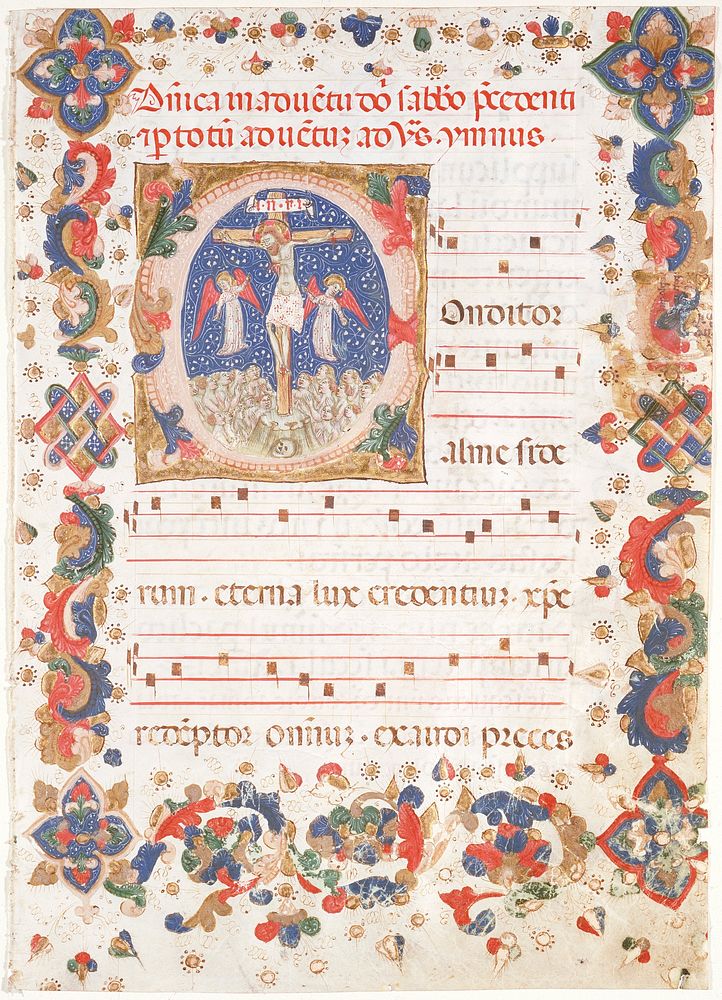 Dn̄ica in aduētu dōi sabb̄o p̄cedenti
⁊ p totū aduētuʒ ad v̄s. ymnus.
I.N.R.I
Onditor
alme side
rum. eterna lux credentiuʒ. xp̄e
redēptor om̄iuʒ. exaudi preces